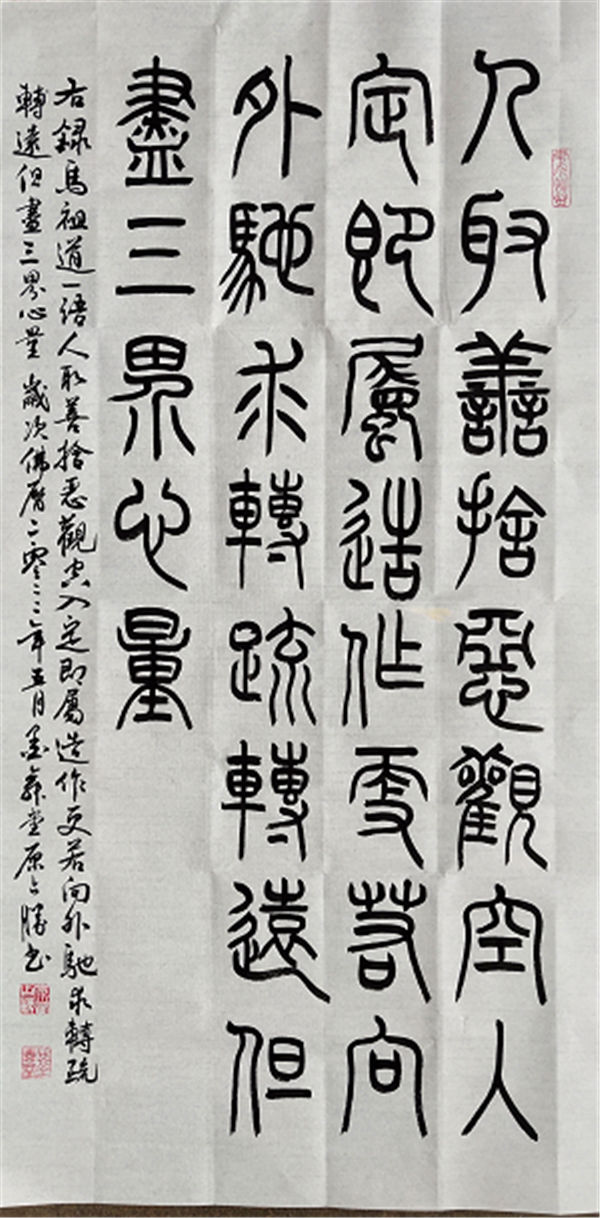 人取譱捨惡觀空入
定即屬造作更若向
外馳求轉疏轉遠但
盡三界心量
右録馬祖道一語人取善捨惡觀空入定即屬造作更若向外馳求轉疏
轉遠但盡三界心量 歲次佛曆二零二二年五月 堂原上勝书